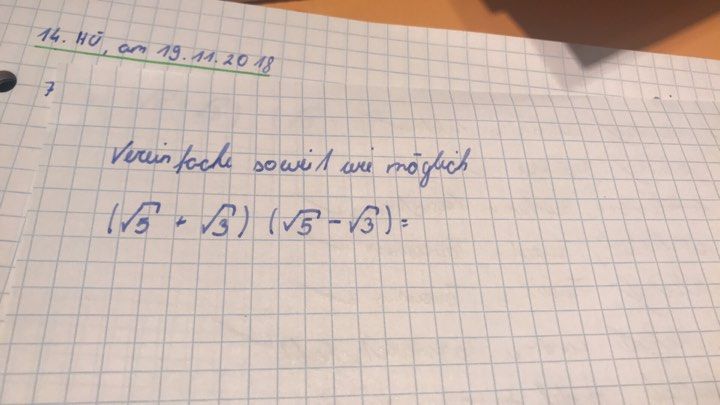 14. HÜ, am 19.11.2018
7
Vereinfache soweit wie möglich
(√5 + √3) (√5 - √3) =